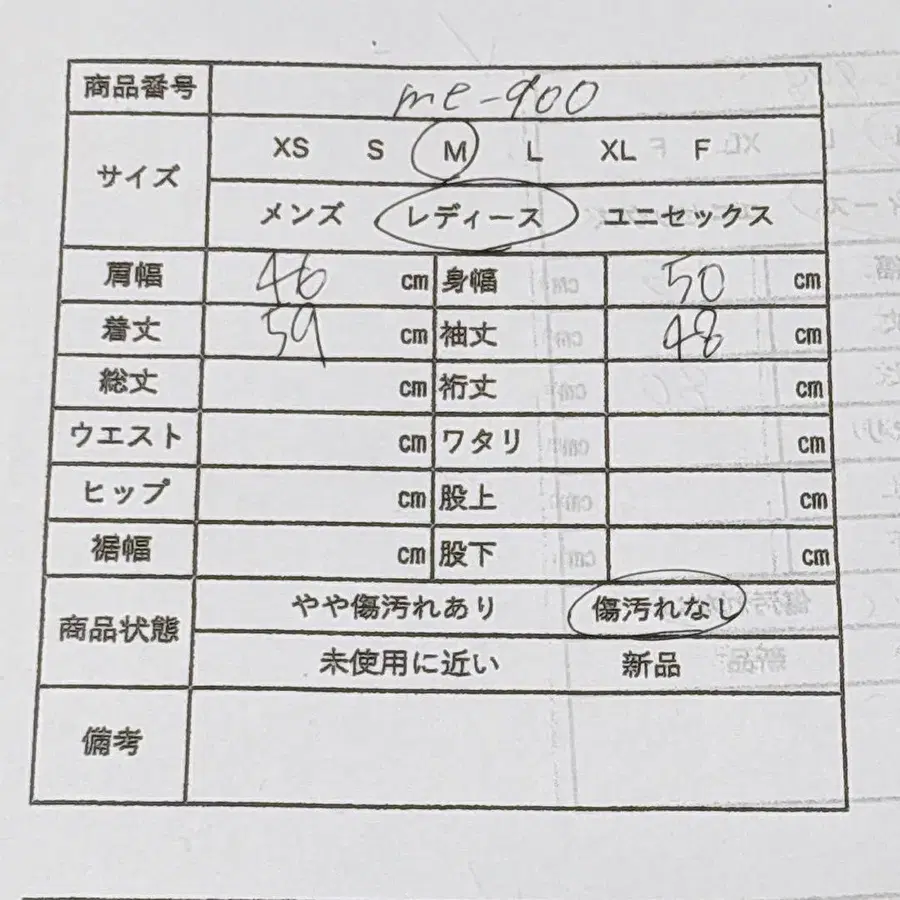 商品番号 me-900
サイズ XS S M L XL F
メンズ レディース ユニセックス
肩幅 46 cm 身幅 50 cm
着丈 59 cm 袖丈 48 cm
総丈 cm 裄丈 cm
ウエスト cm ワタリ cm
ヒップ cm 股上 cm
裾幅 cm 股下 cm
商品状態 やや傷汚れあり 傷汚れなし
未使用に近い 新品
備考